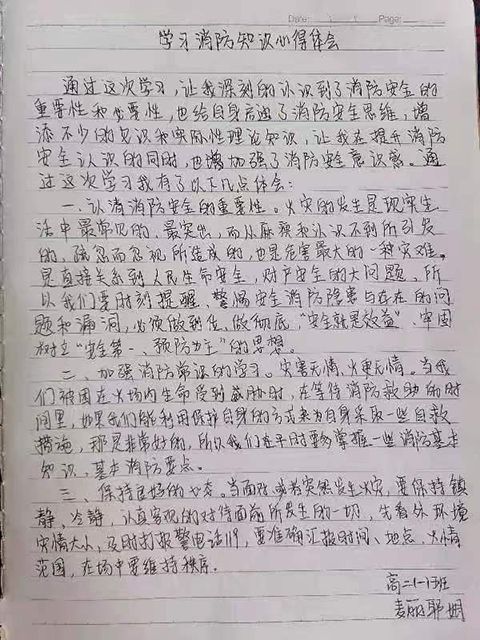 Date: Page:
学习消防知识心得体会
通过这次学习,让我深刻的认识到了消防安全的
重要性和必要性,也给自身启迪了消防安全思维,增
添不少的见识和实际性理论知识,让我在提升消防
安全认识的同时,也增加强了消防安全意识感。通
过这次学习我有了以下几点体会:
一、认清消防安全的重要性。火灾的发生是现实生
活中最常见的、最突出,而从麻痹和认识不到所引发
的,强忽而忽视所造成的,也是危害最大的一种灾难。
是直接关系到人民生命安全,财产安全的大问题。所
以我们要时刻提醒、警惕安全消防隐患与存在的问
题和漏洞,必须做到位、做彻底,“安全就是效益”、牢固
树立“安全第一、预防为主”的思想。
二、加强消防常识的学习。灾害无情、火更无情。当我
们被困在火场内生命受到威胁时,在等待消防救助的时
间里,如果我们能利用保护自身的方式来为自身采取一些自救
措施,那是非常好的,所以我们在平时要多掌握一些消防基本
知识,基本消防要点。
三、保持良好的心态。当面对或者突然发生火灾,要保持镇
静、冷静,认真客观的对待面前所发生的一切,先看外环境
灾情大小,及时打报警电话119,要准确汇报时间、地点、火情
范围,在场中要维持秩序。
高二1-17班
麦丽耶姆